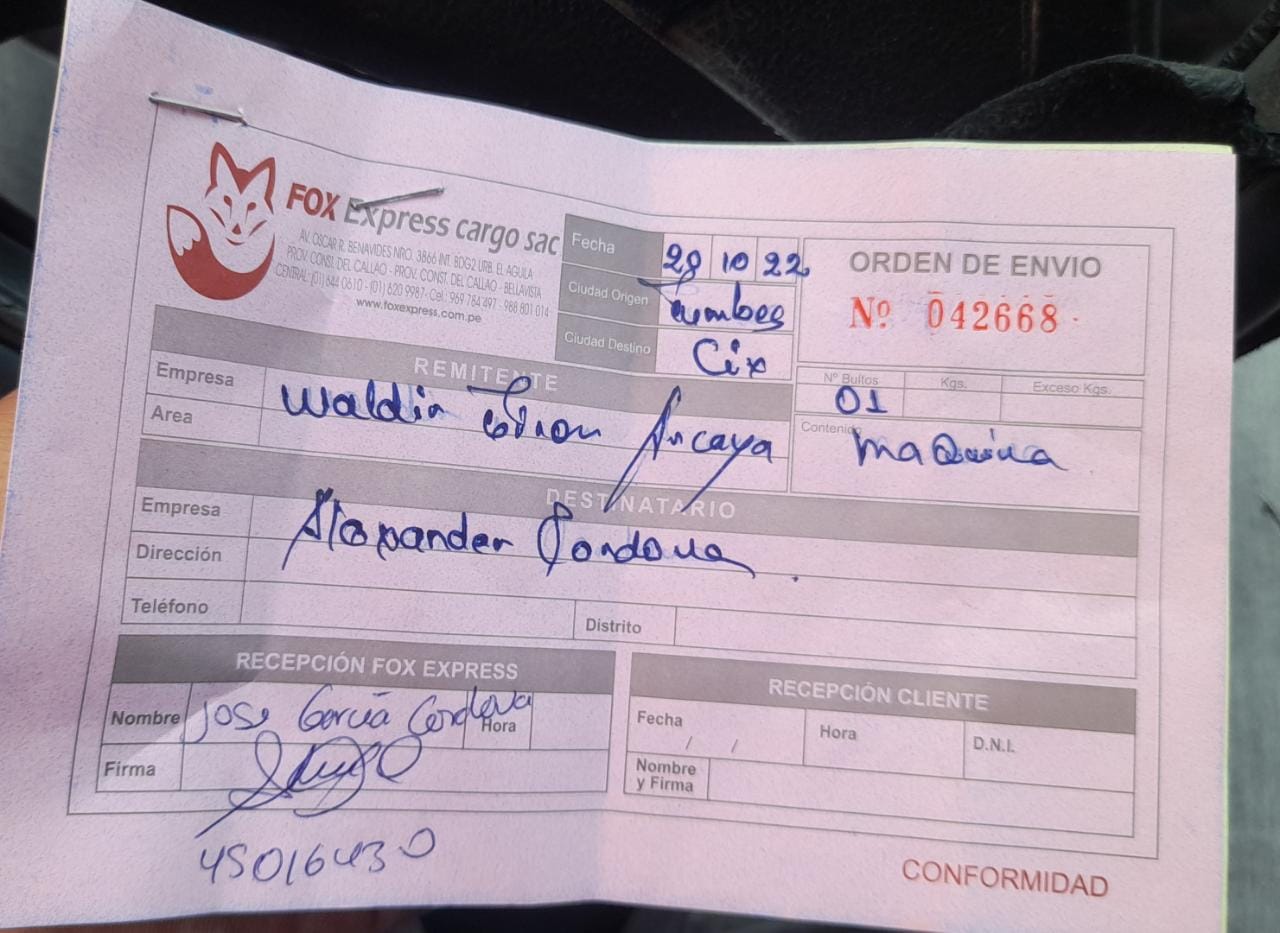 FOX Express cargo sac
AV. OSCAR R. BENAVIDES NRO. 3866 INT. BDG2 URB. EL AGUILA
PROV. CONST. DEL CALLAO - PROV. CONST. DEL CALLAO - BELLAVISTA
CENTRAL: (01) 644 0610 - (01) 620 9987 - Cel.: 969 784 497 - 988 801 014
www.foxexpress.com.pe
Fecha 28 10 22
Ciudad Origen Tumbes
Ciudad Destino Cix
ORDEN DE ENVIO
Nº 042668
Nº Bultos 01 Kgs. Exceso Kgs.
Contenido Maquina
REMITENTE
Empresa Waldir Ancaya
Area
DESTINATARIO
Empresa Alexander Cordova
Dirección
Teléfono Distrito
RECEPCIÓN FOX EXPRESS
Nombre Jose Garcia Cordova Hora
Firma
45016430
RECEPCIÓN CLIENTE
Fecha / / Hora D.N.I.
Nombre
y Firma
CONFORMIDAD